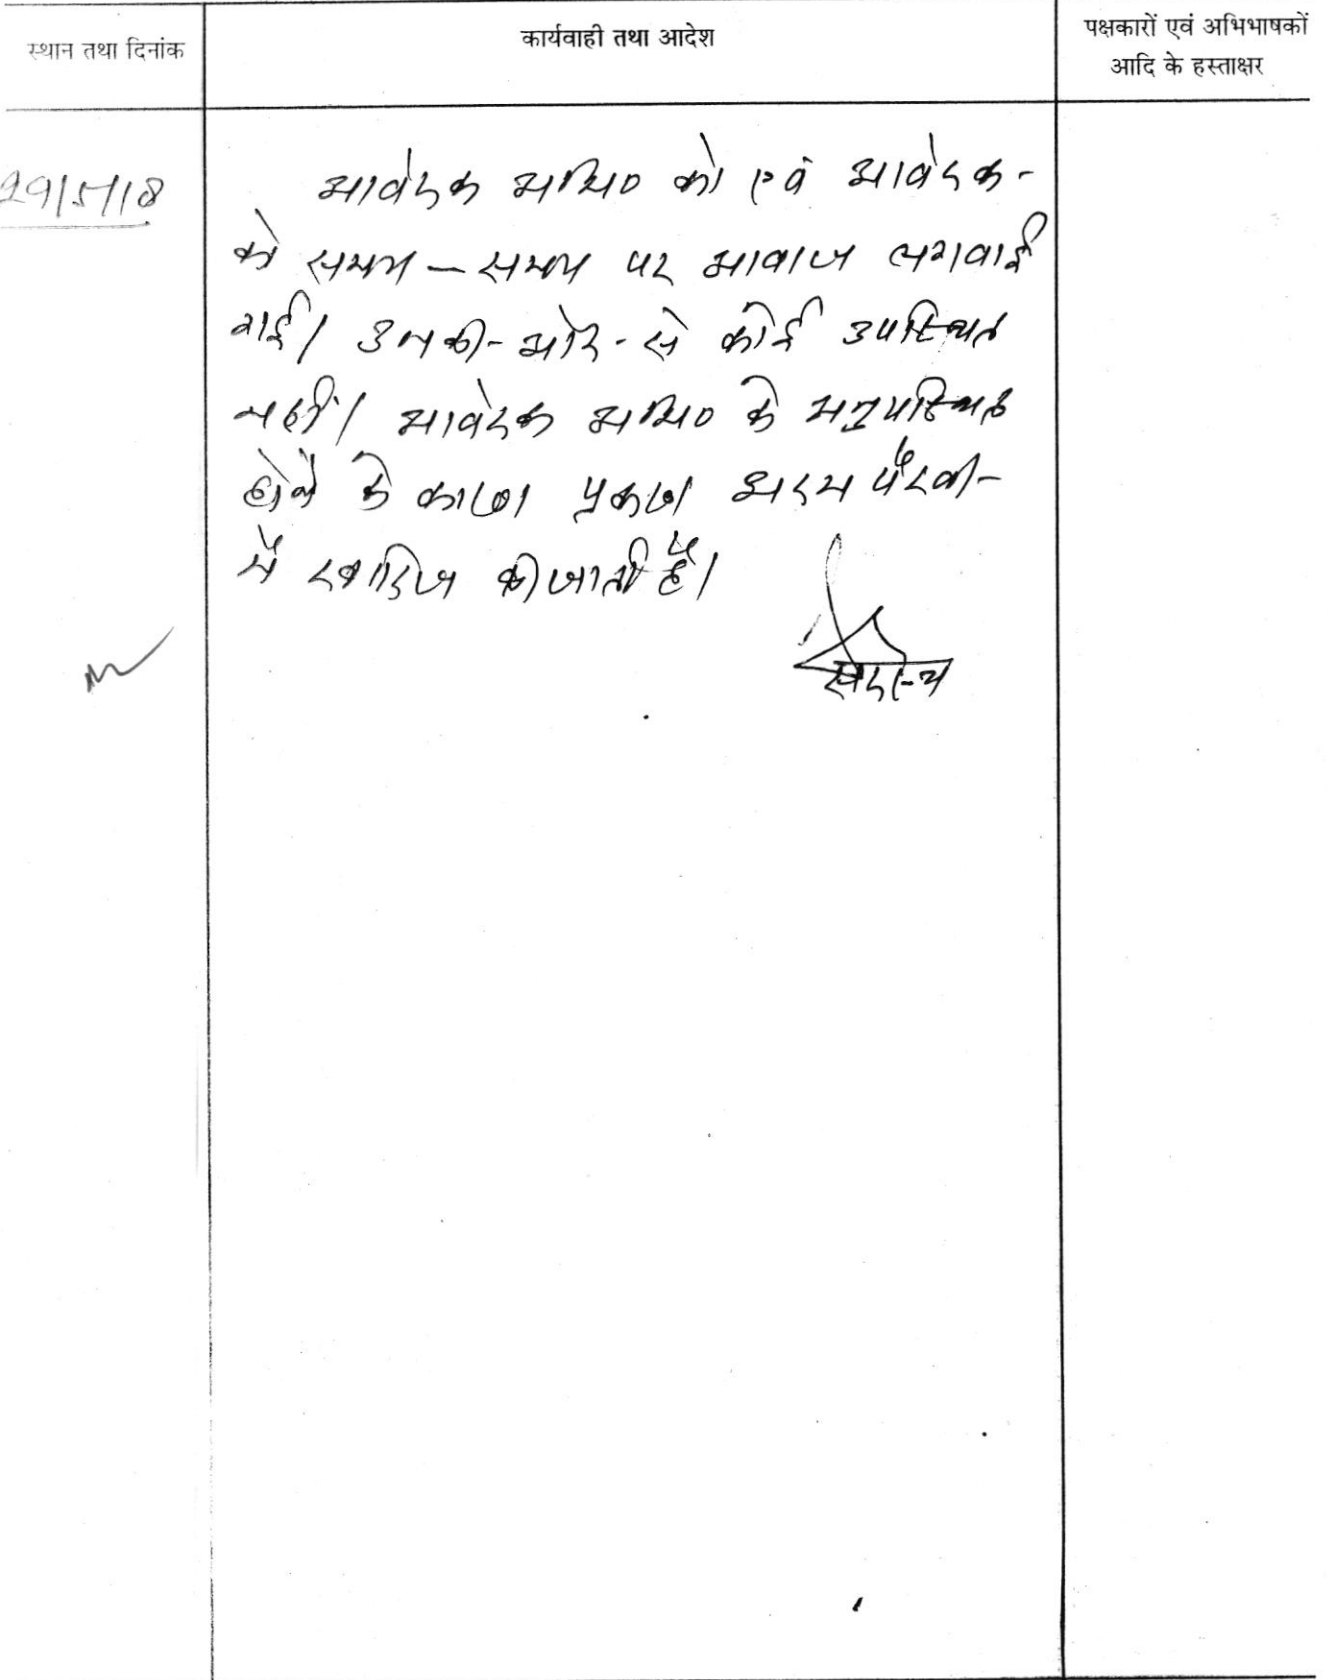 स्थान तथा दिनांक
कार्यवाही तथा आदेश
पक्षकारों एवं अभिभाषकों
आदि के हस्ताक्षर
29/5/18
आवेदक अभि0 को एवं आवेदक-
को समय - समय पर आवाज लगवाई
गई। उनकी - ओर - से कोई उपस्थित
नहीं। आवेदक अभि0 के अनुपस्थित
होने के कारण प्रकरण अदम पैरवी -
में खारिज की जाती है।
सदस्य